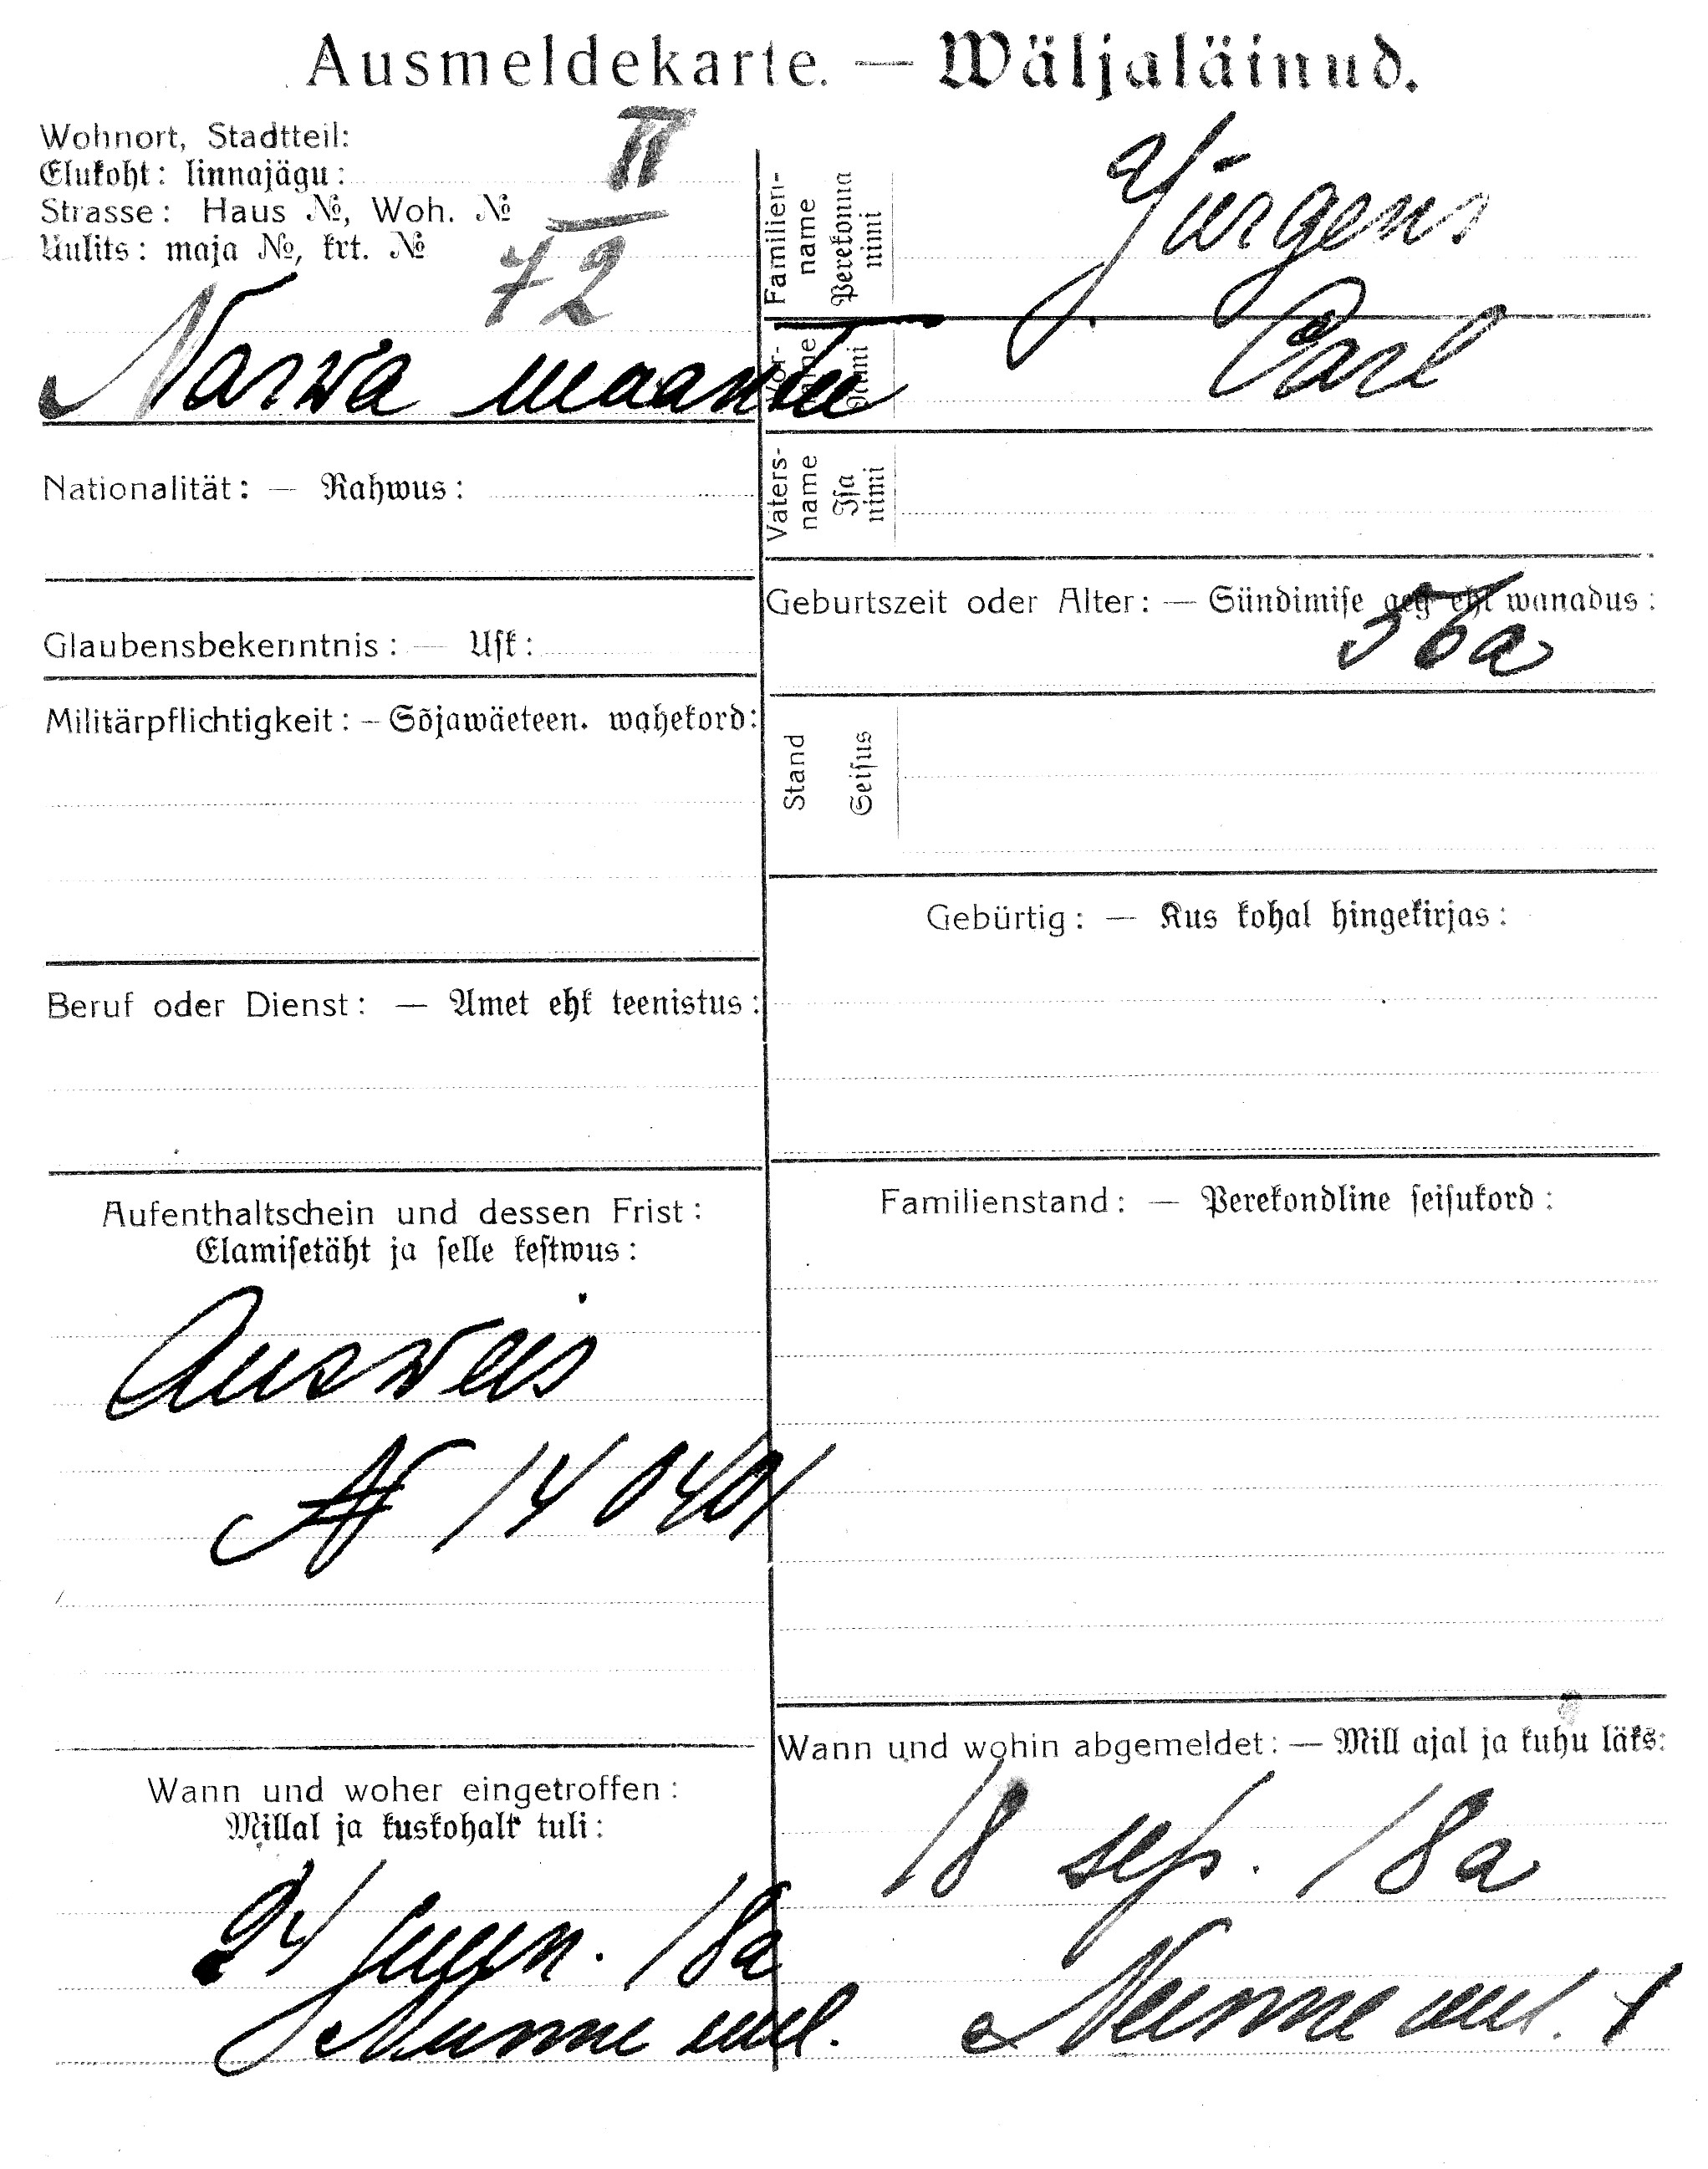 Ausmeldekarte. — Wäljaläinud.
Wohnort, Stadtteil:
Elukoht: linnajägu: II
Strasse: Haus №, Woh. №
Uulits: maja №, krt. № 72
Narwa maantee
Nationalität: — Rahwus:
Glaubensbekenntnis: — Usk:
Militärpflichtigkeit: – Sõjawäeteen. wahekord:
Beruf oder Dienst: — Amet ehk teenistus:
Aufenthaltschein und dessen Frist:
Elamisetäht ja selle kestwus:
Ausweis
№ 140401
Wann und woher eingetroffen:
Millal ja kuskohalt tuli:
24 Juun. 18a
Nunne uul.
Familienname Perekonna nimi Jürgens
Vorname Nimi Carl
Vatersname Isa nimi
Geburtszeit oder Alter: — Sündimise aeg ehk wanadus:
56a
Stand Seisus
Gebürtig: — Kus kohal hingekirjas:
Familienstand: — Perekondline seisukord:
Wann und wohin abgemeldet: — Mill ajal ja kuhu läks:
18 sep. 18a
Nunne uul.